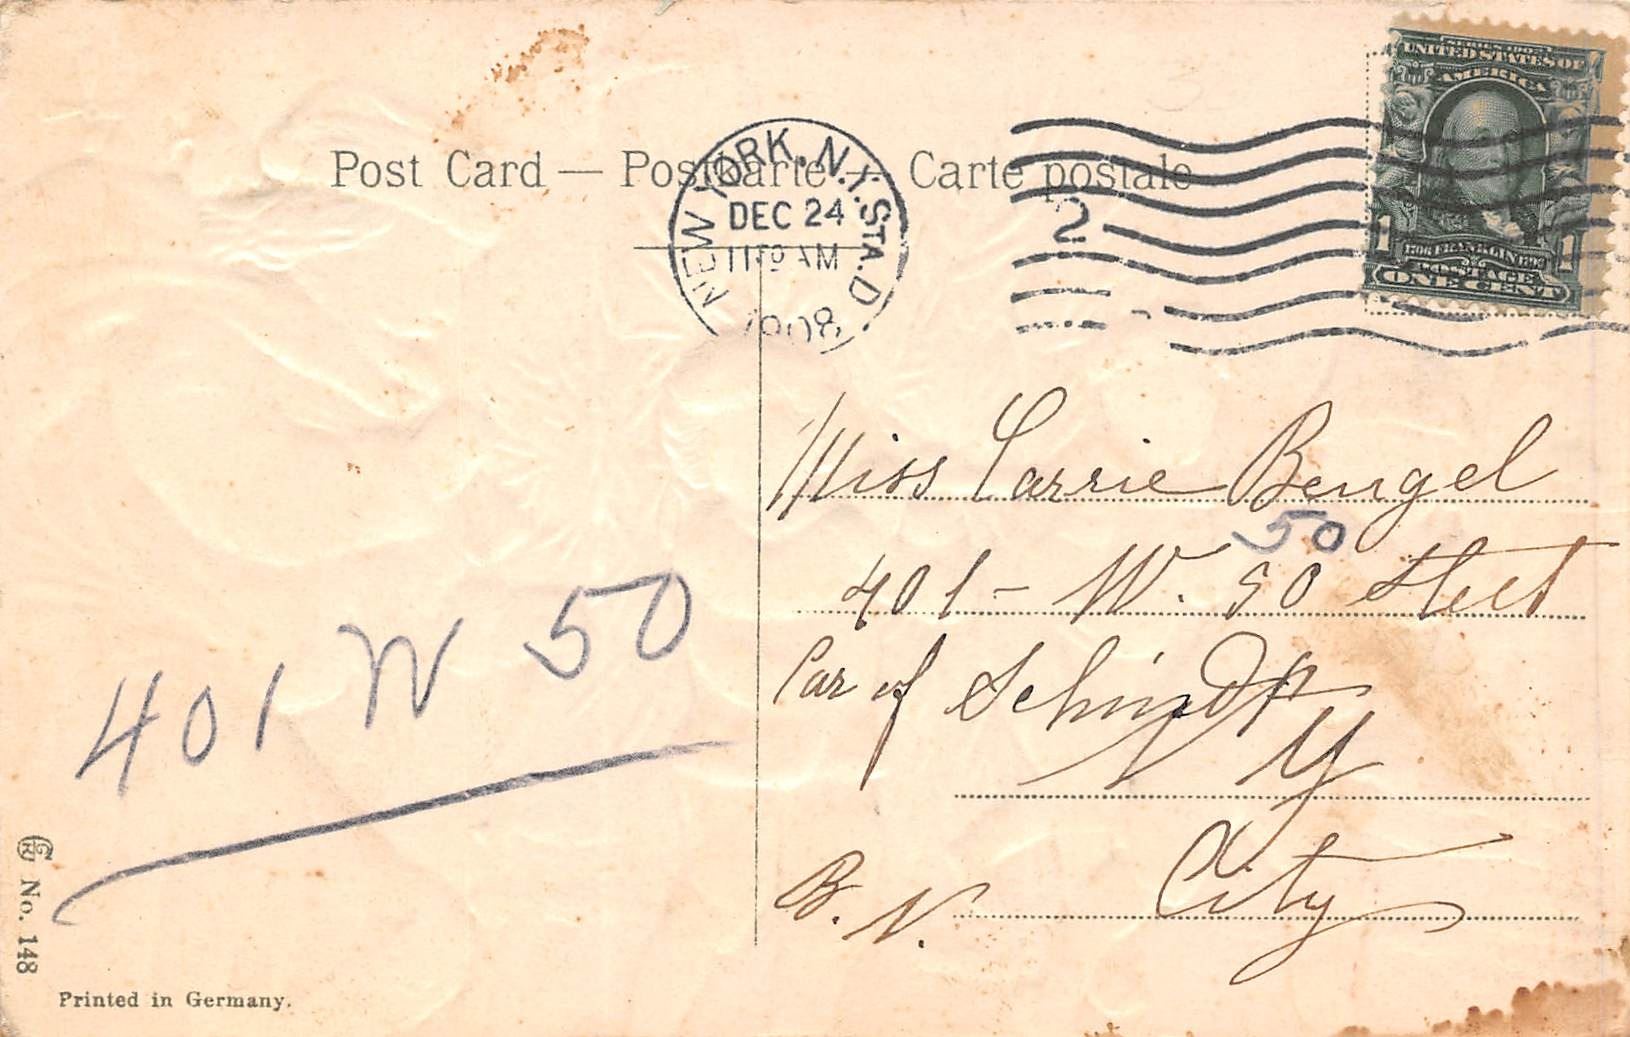 Post Card — Postkarte — Carte postale
NEW YORK, N.Y. STA. D.
DEC 24
AM
1908
2
SERIES 1902
UNITED STATES OF
AMERICA
1 1
1706 FRANKLIN 1790
POSTAGE
ONE CENT
Miss Carrie Bengel
50
401 - W. 50 Street
Car of Schmidt
N Y
City
B. N.
401 W 50
GR No. 148
Printed in Germany.